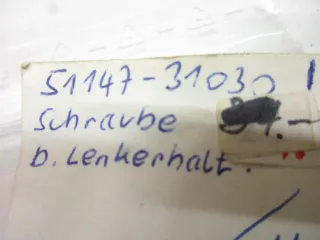 51147-31030
Schraube
b. Lenkerhalt.